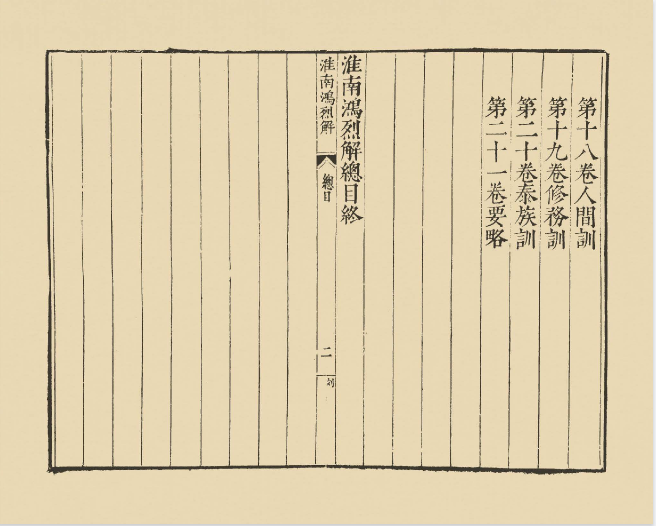 第十八卷人間訓
第十九卷修務訓
第二十卷泰族訓
第二十一卷要略
淮南鴻烈解總目終
淮南鴻烈解
總目
二